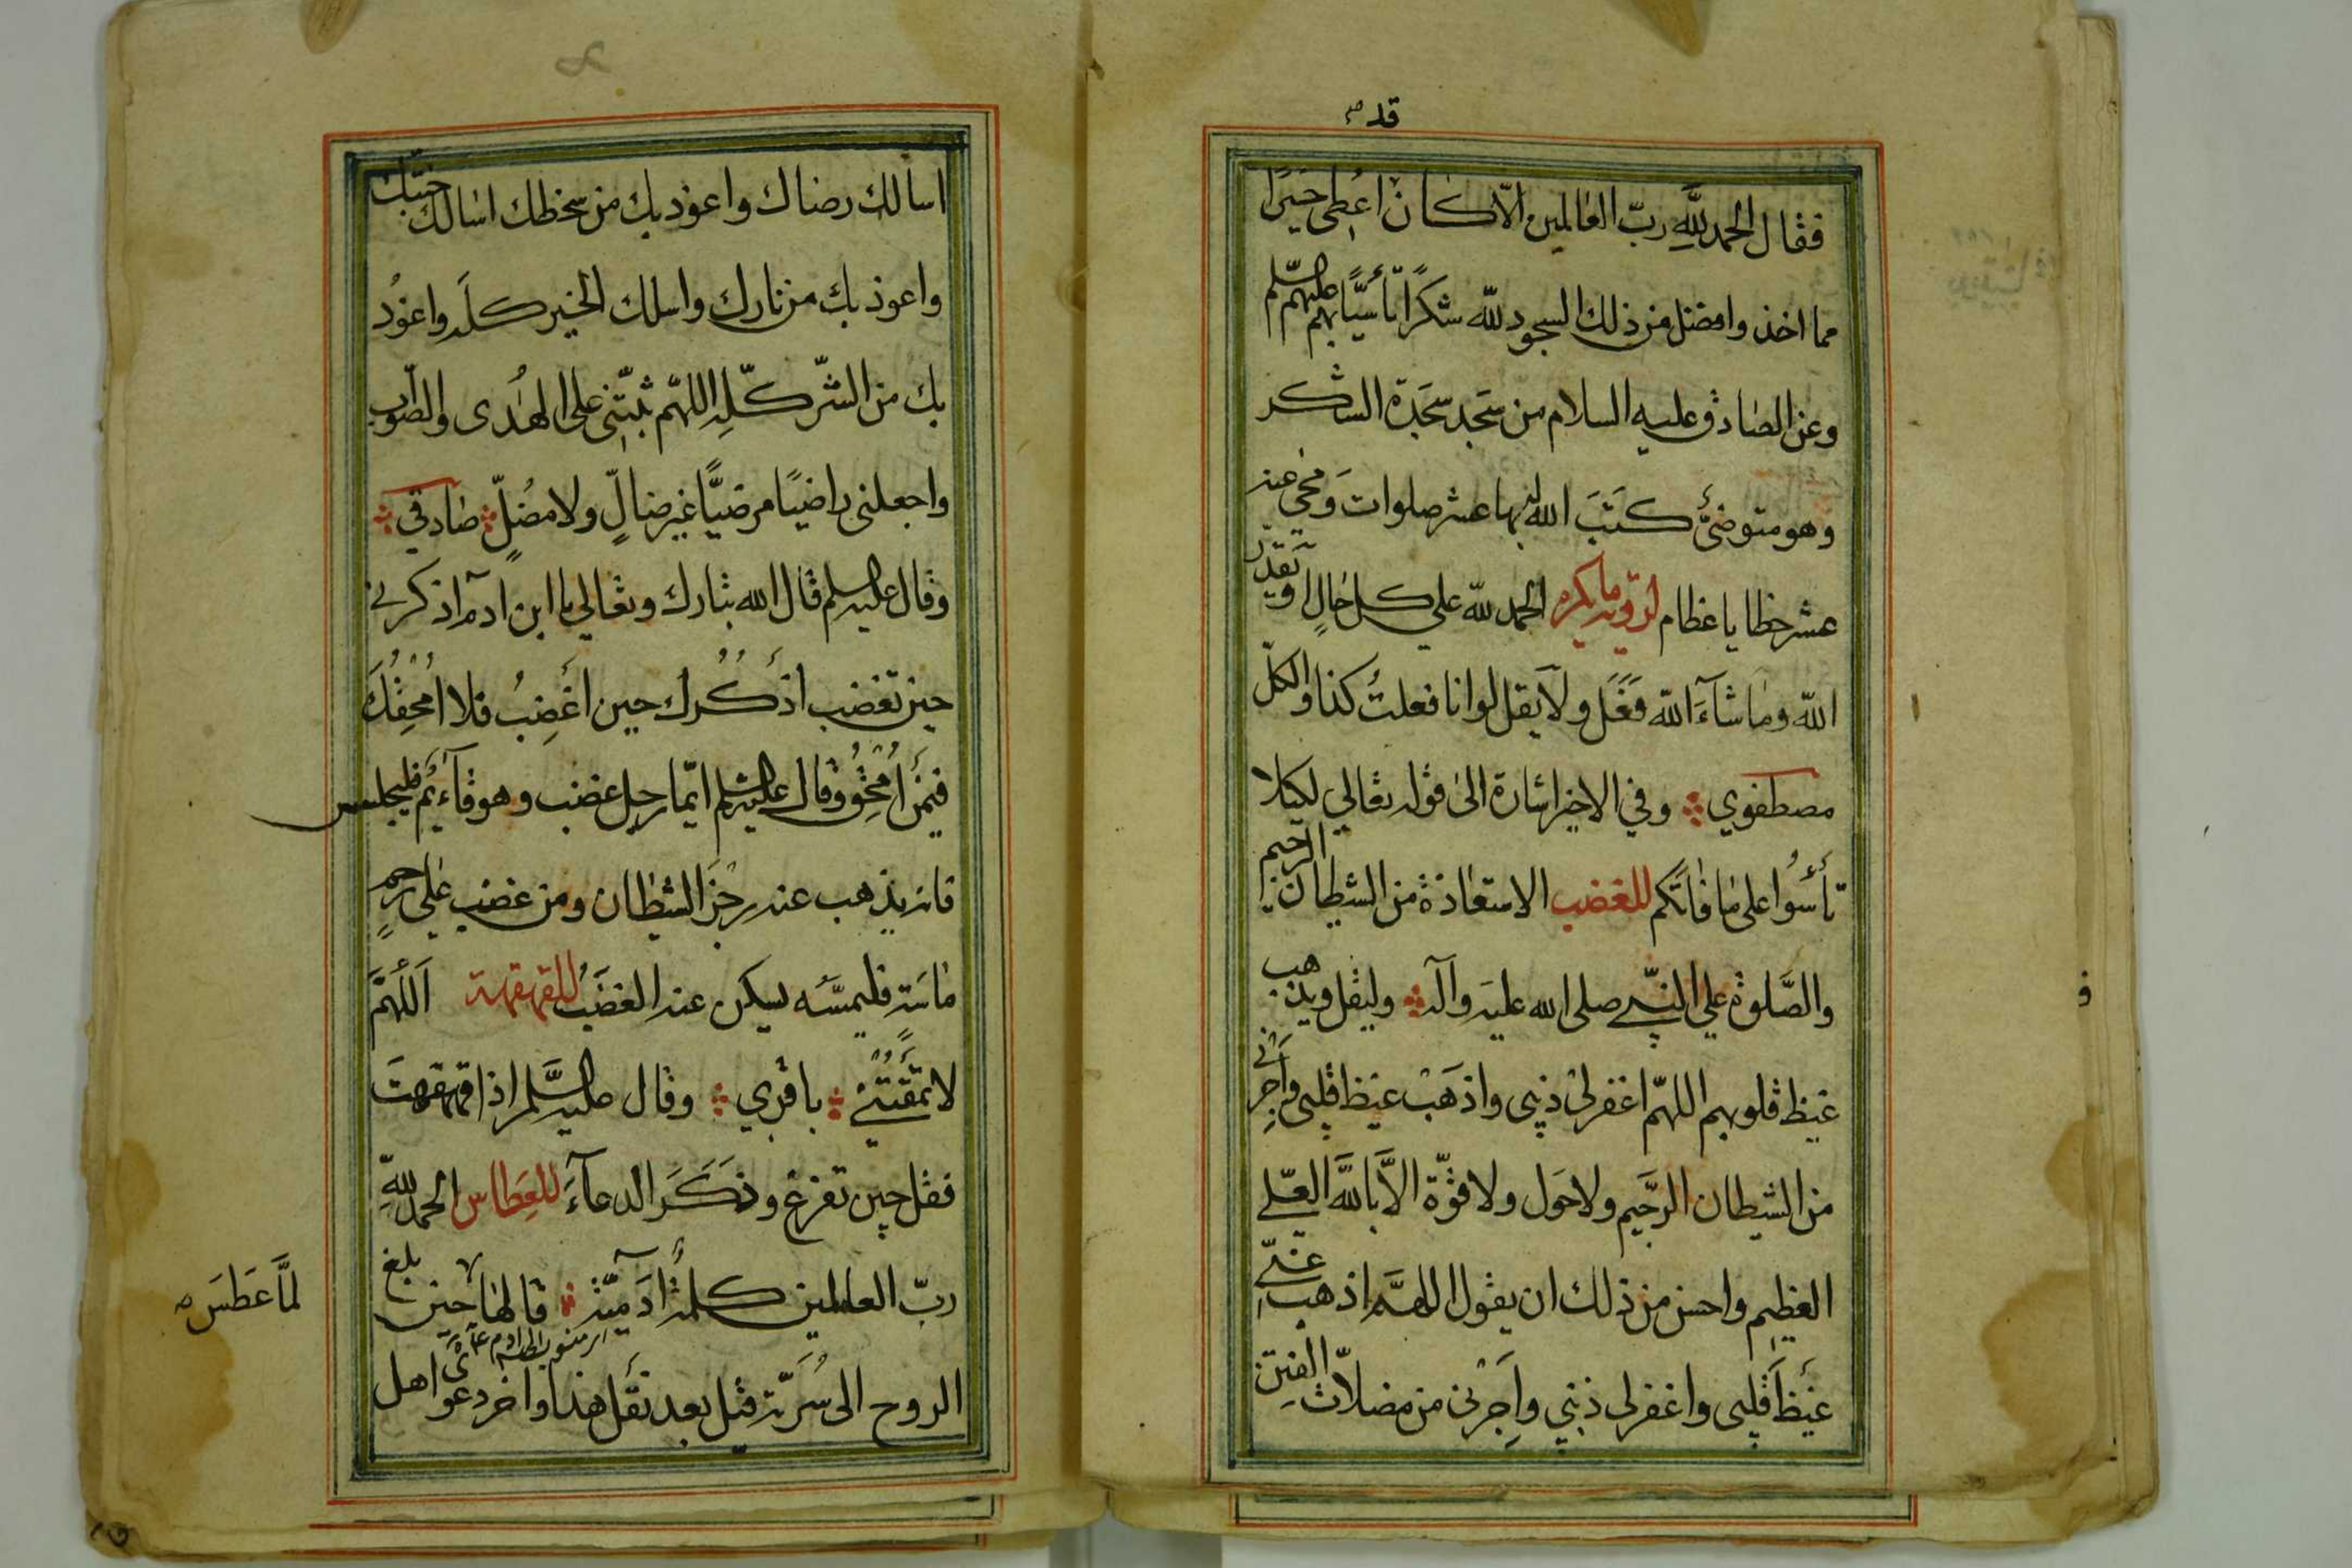 قد
فقال الحمد لله ربّ العالمين الّا كان اُعطِىَ خيرًا
مما اخذ وافضل من ذلك السجود لله شكرًا تأسّيًا بهم عليهم السّلم
وعن الصادق عليه السلام من سَجد سَجَدة الشكر
وهو متوضئ كَتبَ الله له بها عشر صلوات وَمحى عنه
عشر خطايا عظام لرؤية ما يكره الحمد لله على كل حالٍ او قدّر
الله وما شآءَ الله فَعَل ولا يقل لو انا فعلتُ كذا والكلّ
مصطفوي وفي الاخير اشارة الى قوله تعالي لكيلا
تأسوُا على ما فاتكم للغضب الاستعاذة من الشيطان الرجيم
والصَّلوة على النبي صلى الله عليه وآله وليقل ويذهب
غيظ قلوبهم اللهمّ اغفر لى ذنبى واذهَبْ غيظ قلبى واَجِرنى
من الشيطان الرَّجيم ولا حَول ولا قوّة الاَّ بالله العَليّ
العظيم واحسن من ذلك ان يقول اللهمَّ اذهب عَنّي
غيظَ قلبى واغفر لى ذنبي واَجِرْنى من مضلاّت الفتن
اسألك رضاك واعوذ بك من سخطك اسالك جنّتك
واعوذ بك من نارك واسلك الخير كلّه واعوُذ
بك من الشّر كلّهِ اللهمّ ثبّتنى على الهُدى والصّواب
واجعلنى راضيًا مرضيًّا غير ضالٍّ ولا مضُلٍّ صادقي
وقال عليه السلم قال الله تبارك وتعالي يا ابن ادم اذكرني
حين تغضب اذكُرك حين اغضِبُ فلا اَمحقك
فيمَن اَمحق وقال عليه السلم ايّما رجل غضب وهو قآئم فليجلس
فانه يذهب عنه رجز الشيطان ومن غضب على ذي رحم
ماسّة فليمسّه يسكن عنه الغضبُ للقهقهة اَللهمَّ
لا تمقتني باقري وقال عليه السَّلم اذا قهقهت
فقل حين تفرغ وذَكَرَ الدعآءَ للعِطاس الحمد للهِ
ربّ العالمين كلمة ادَميّة قالها حين بلغ
لمَّا عَطسَ
الروح الى سُرّته قيل بعد نقل هذا واخر دعوى اهل